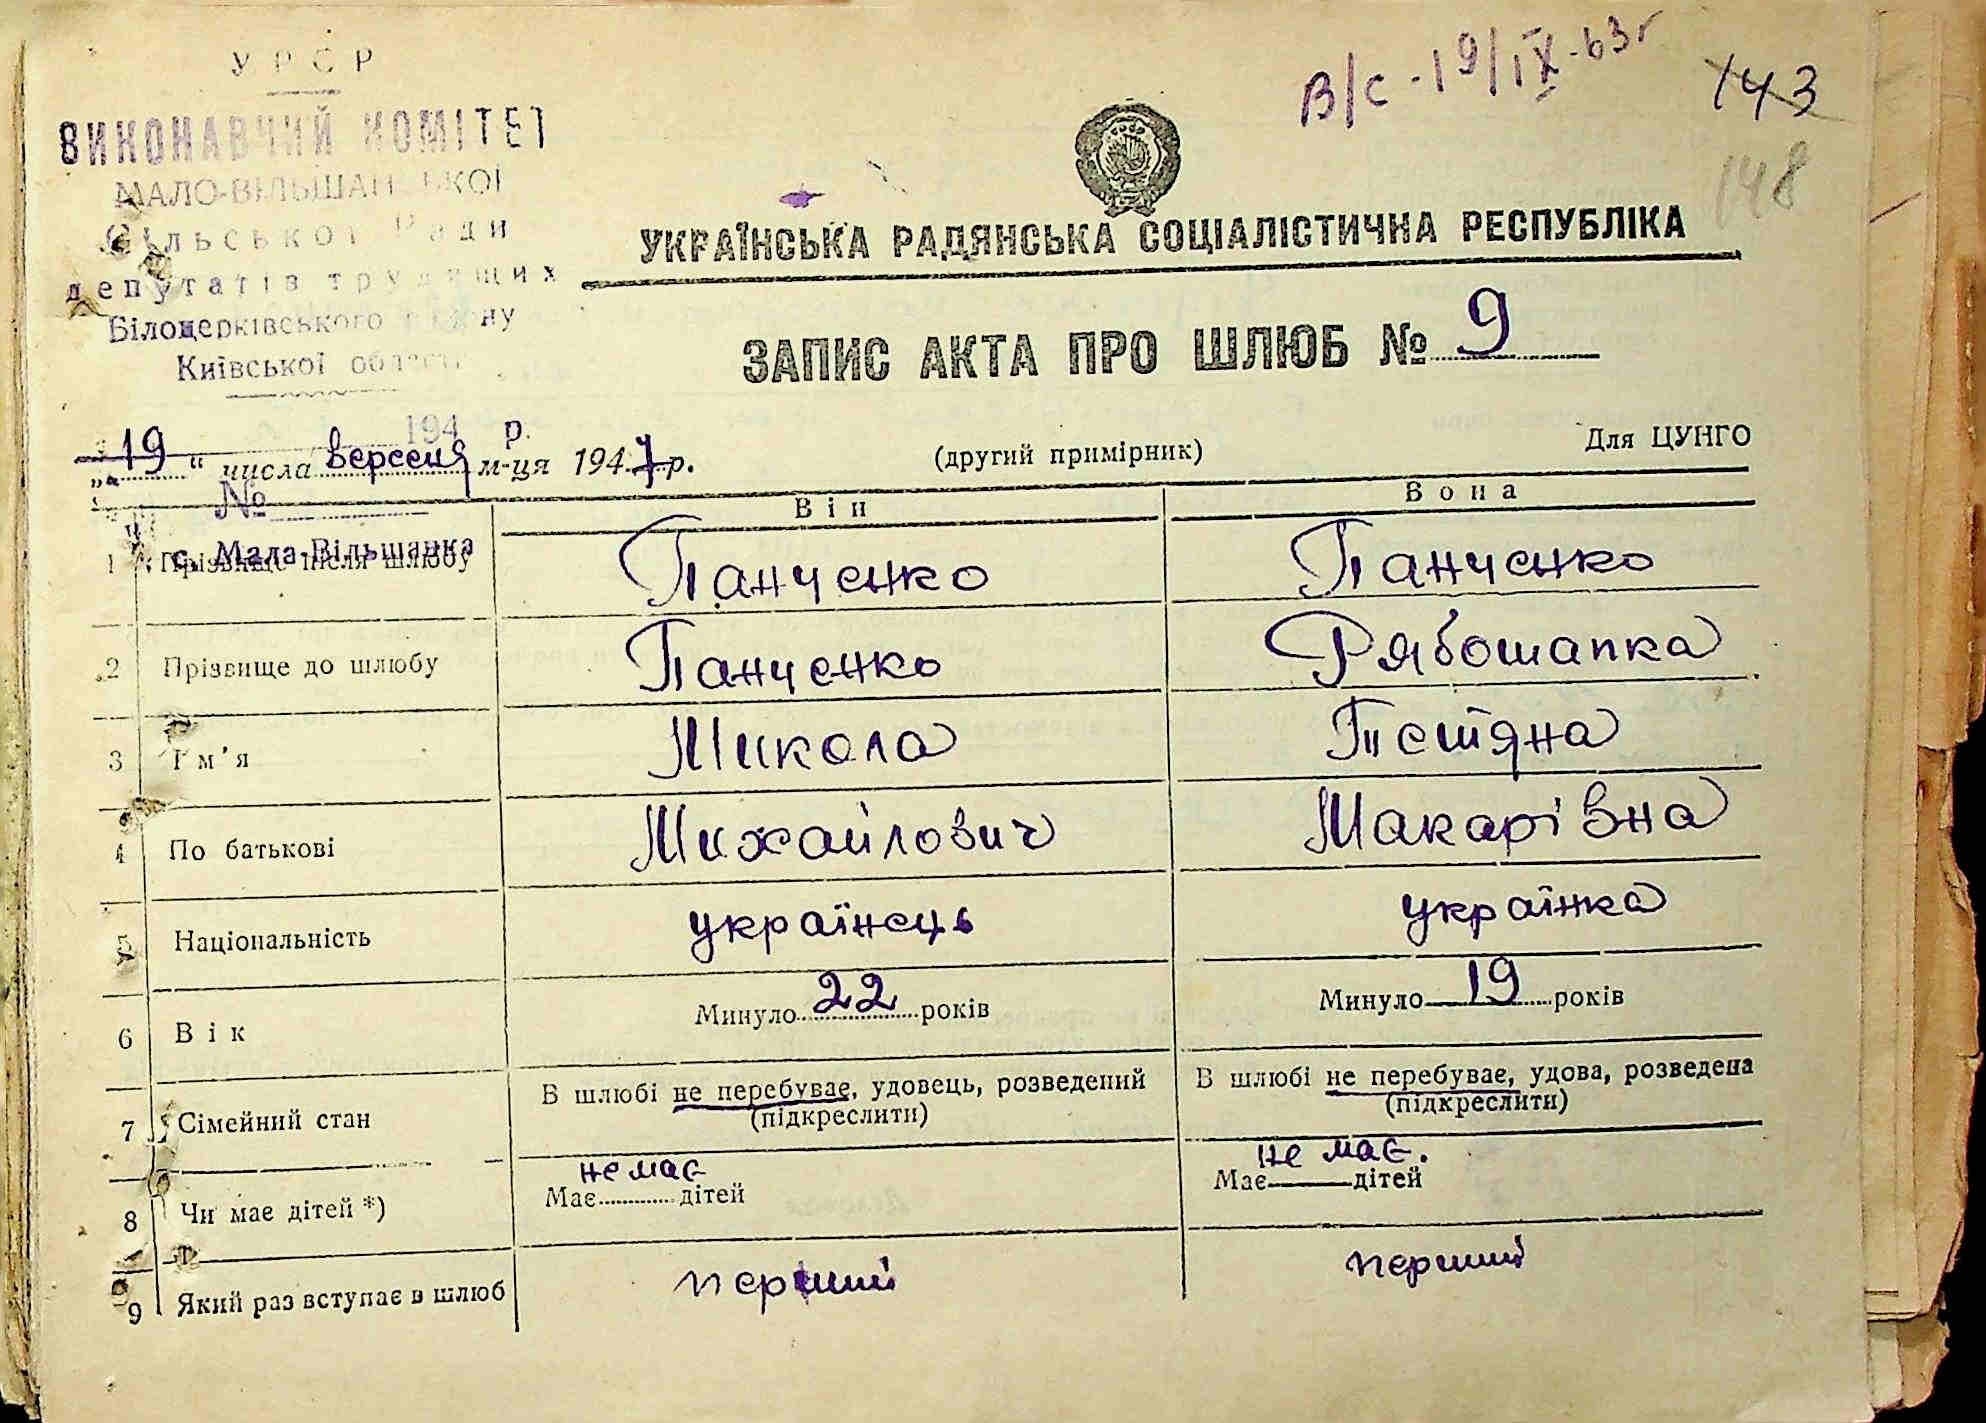 У Р С Р
ВИКОНАВЧИЙ КОМІТЕТ
МАЛО-ВІЛЬШАНСЬКОЇ
Сільської Ради
депутатів трудящих
Білоцерківського району
Київської області
194 р.
№
с. Мала-Вільшанка
В/с - 19/IX-63г
143
148
УКРАЇНСЬКА РАДЯНСЬКА СОЦІАЛІСТИЧНА РЕСПУБЛІКА
ЗАПИС АКТА ПРО ШЛЮБ № 9
„19“ числа вересня м-ця 1947 р.
(другий примірник)
Для ЦУНГО
Він Вона
1 Прізвище після шлюбу Панченко Панченко
2 Прізвище до шлюбу Панченко Рябошапка
3 Ім'я Микола Тетяна
4 По батькові Михайлович Макарівна
5 Національність українець українка
6 Вік Минуло 22 років Минуло 19 років
7 Сімейний стан В шлюбі не перебуває, удовець, розведений В шлюбі не перебуває, удова, розведена
(підкреслити) (підкреслити)
не має не має.
8 Чи має дітей *) Має дітей Має дітей
9 Який раз вступає в шлюб перший перший